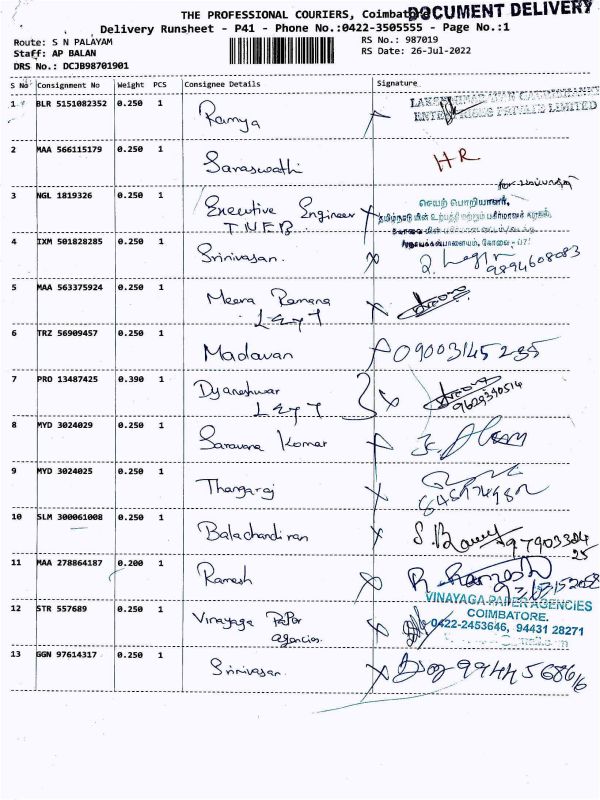 THE PROFESSIONAL COURIERS, Coimbatore
DOCUMENT DELIVERY
Delivery Runsheet - P41 - Phone No.:0422-3505555 - Page No.:1
Route: S N PALAYAM
RS No.: 987019
Staff: AP BALAN
RS Date: 26-Jul-2022
DRS No.: DCJB98701901
S No Consignment No Weight PCS Consignee Details Signature
1 BLR 5151082352 0.250 1 Ramya
ENTERPRISES PRIVATE LIMITED
2 MAA 566115179 0.250 1 Saraswathi HR
3 NGL 1819326 0.250 1 Executive Engineer
T.N.E.B.
செயற் பொறியாளர்,
4 IXM 501828285 0.250 1 Srinivasan.
9894608083
5 MAA 563375924 0.250 1 Meera Ramana
L&T
6 TRZ 56909457 0.250 1 Madavan 09003145235
7 PRO 13487425 0.390 1 Dyaneshwar
L&T
9629390514
8 MYD 3024029 0.250 1 Saravana Kumar
9 MYD 3024025 0.250 1 Thangaraj
10 SLM 300061008 0.250 1 Balachandiran
11 MAA 278864187 0.200 1 Ramesh
12 STR 557689 0.250 1 Vinayaga Paper
agencies.
VINAYAGA PAPER AGENCIES
COIMBATORE.
0422-2453646, 94431 28271
13 GGN 97614317 0.250 1 Srinivasan